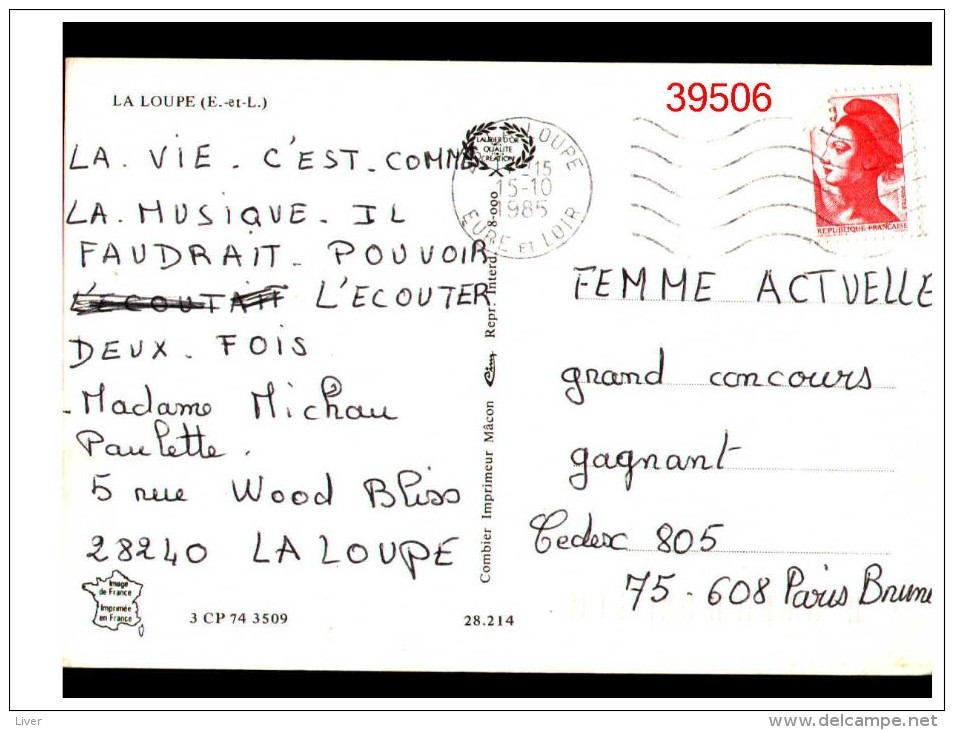 39506
LA LOUPE (E.-et-L.)
LA. VIE. C'EST. COMME
LA. MUSIQUE. IL
FAUDRAIT. POUVOIR
L'ECOUTER
DEUX. FOIS
Madame Michau
Paulette.
5 rue Wood Bliss
28240 LA LOUPE
Image
de France
Imprimée
en France
3 CP 74 3509
28.214
Combier Imprimeur Mâcon Cim Repr. Interd.
LAURIER D'OR
QUALITE
CREATION
LOUPE
15-10
1985
EURE ET LOIR
POSTES
REPUBLIQUE FRANÇAISE
FEMME ACTUELLE
grand concours
gagnant
Cedex 805
75-608 Paris Brune
Liver
www.delcampe.net